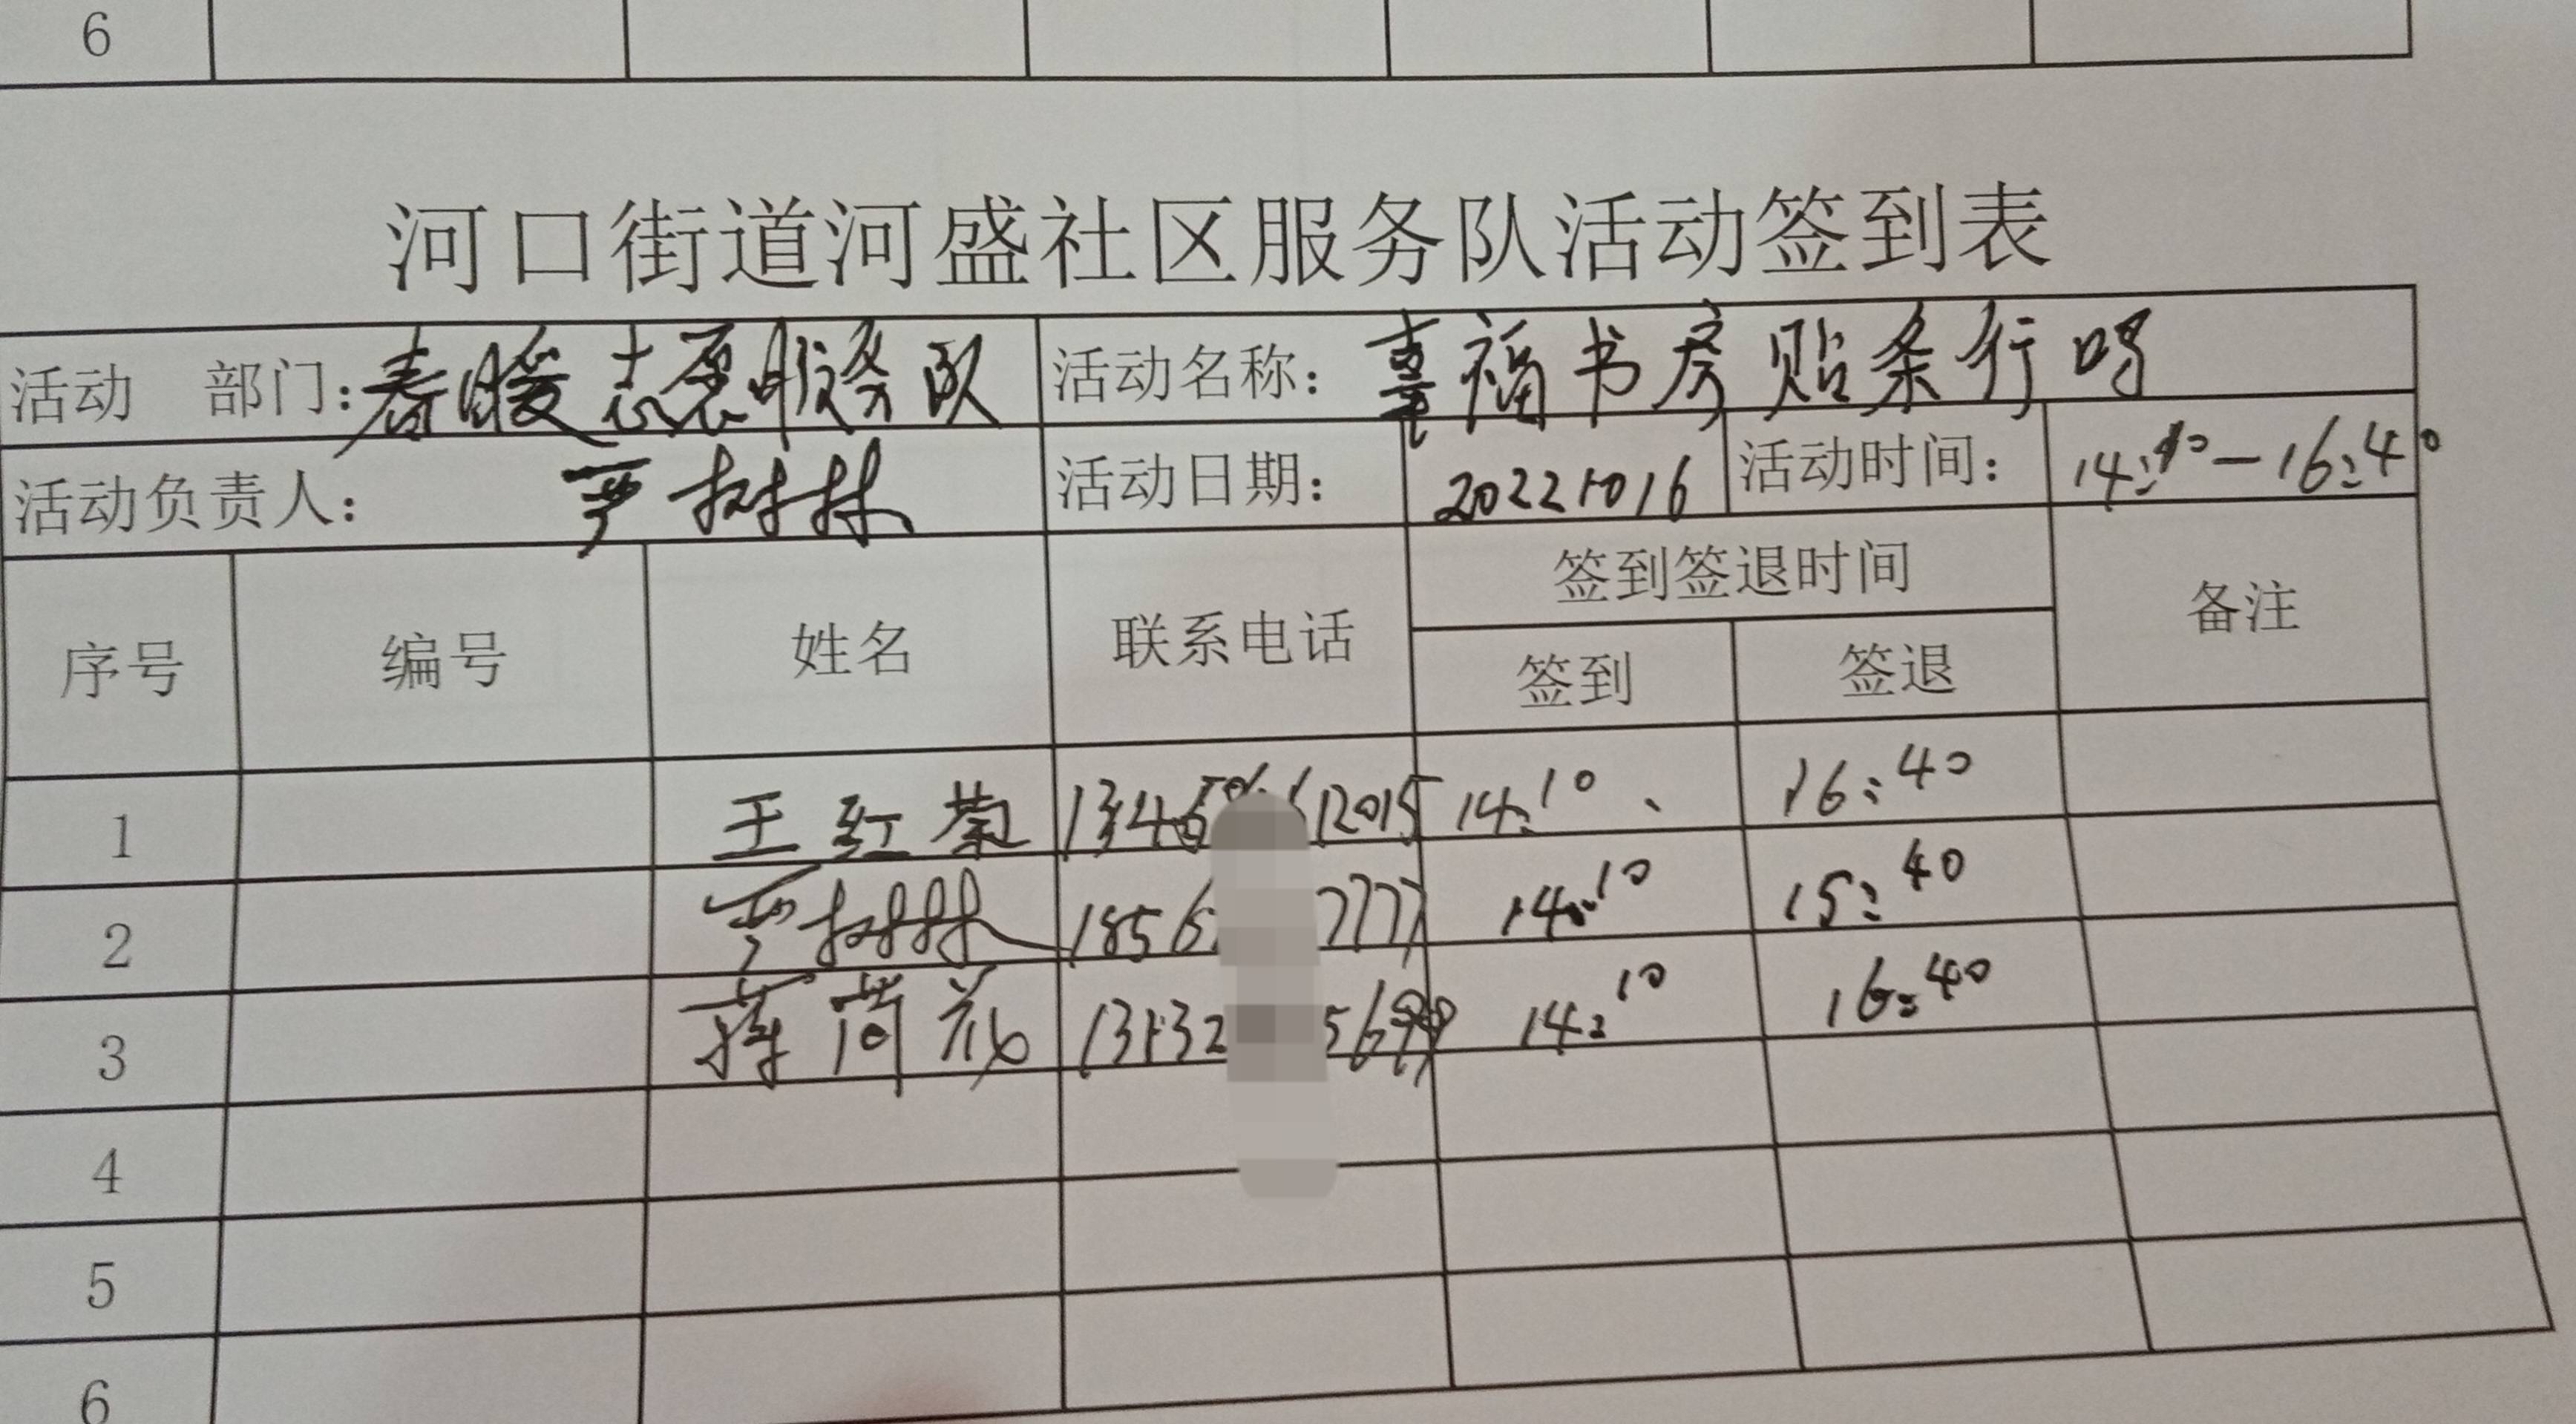 6
河口街道河盛社区服务队活动签到表
活动 部门：春暖志愿服务队 活动名称：幸福书房贴条行
活动负责人： 严树林 活动日期： 20221016 活动时间： 14:10－16:40
序号 编号 姓名 联系电话 签到签退时间 备注
签到 签退
1 王红菊 12015 14:10 16:40
2 严树林 1856 7777 14:10 15:40
3 蒋 13132 14:10 16:40
4
5
6